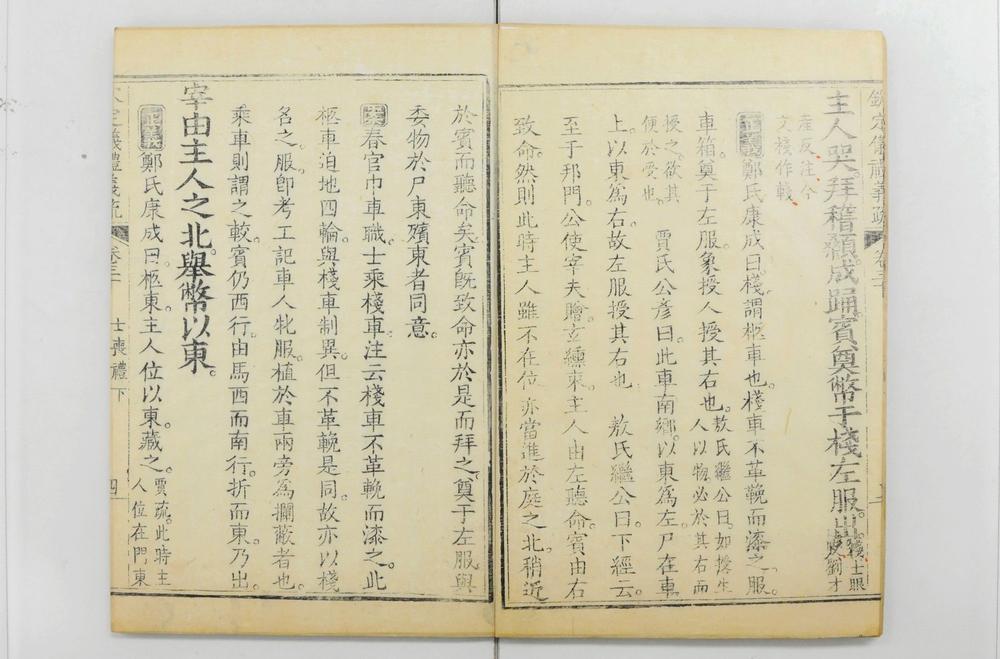 欽定儀禮義疏 卷三十
主人哭拜稽顙成踊賓奠幣于棧左服出棧士眼
反劉才
產反注今
文棧作輚
正義鄭氏康成曰棧謂柩車也棧車不革鞔而漆之服
車箱奠于左服象授人授其右也敖氏繼公曰如授生
人以物必於其右而
授之欲其
便於受也 賈氏公彥曰此車南鄉以東爲左尸在車
上以東爲右故左服授其右也 敖氏繼公曰下經云
至于邦門公使宰夫贈玄纁束主人由左聽命賓由右
致命然則此時主人雖不在位亦當進於庭之北稍近
於賓而聽命矣賓旣致命亦於是而拜之奠于左服與
委物於尸東殯東者同意
案春官巾車職士乘棧車注云棧車不革輓而漆之此
柩車迫地四輪與棧車制異但不革輓是同故亦以棧
名之服卽考工記車人牝服植於車兩旁爲攔蔽者也
乘車則謂之較賓仍西行由馬西而南行折而東乃出
宰由主人之北舉幣以東
正義鄭氏康成曰柩東主人位以東藏之賈疏此時主
人位在門東
欽定儀禮義疏 卷三十 士喪禮下 四